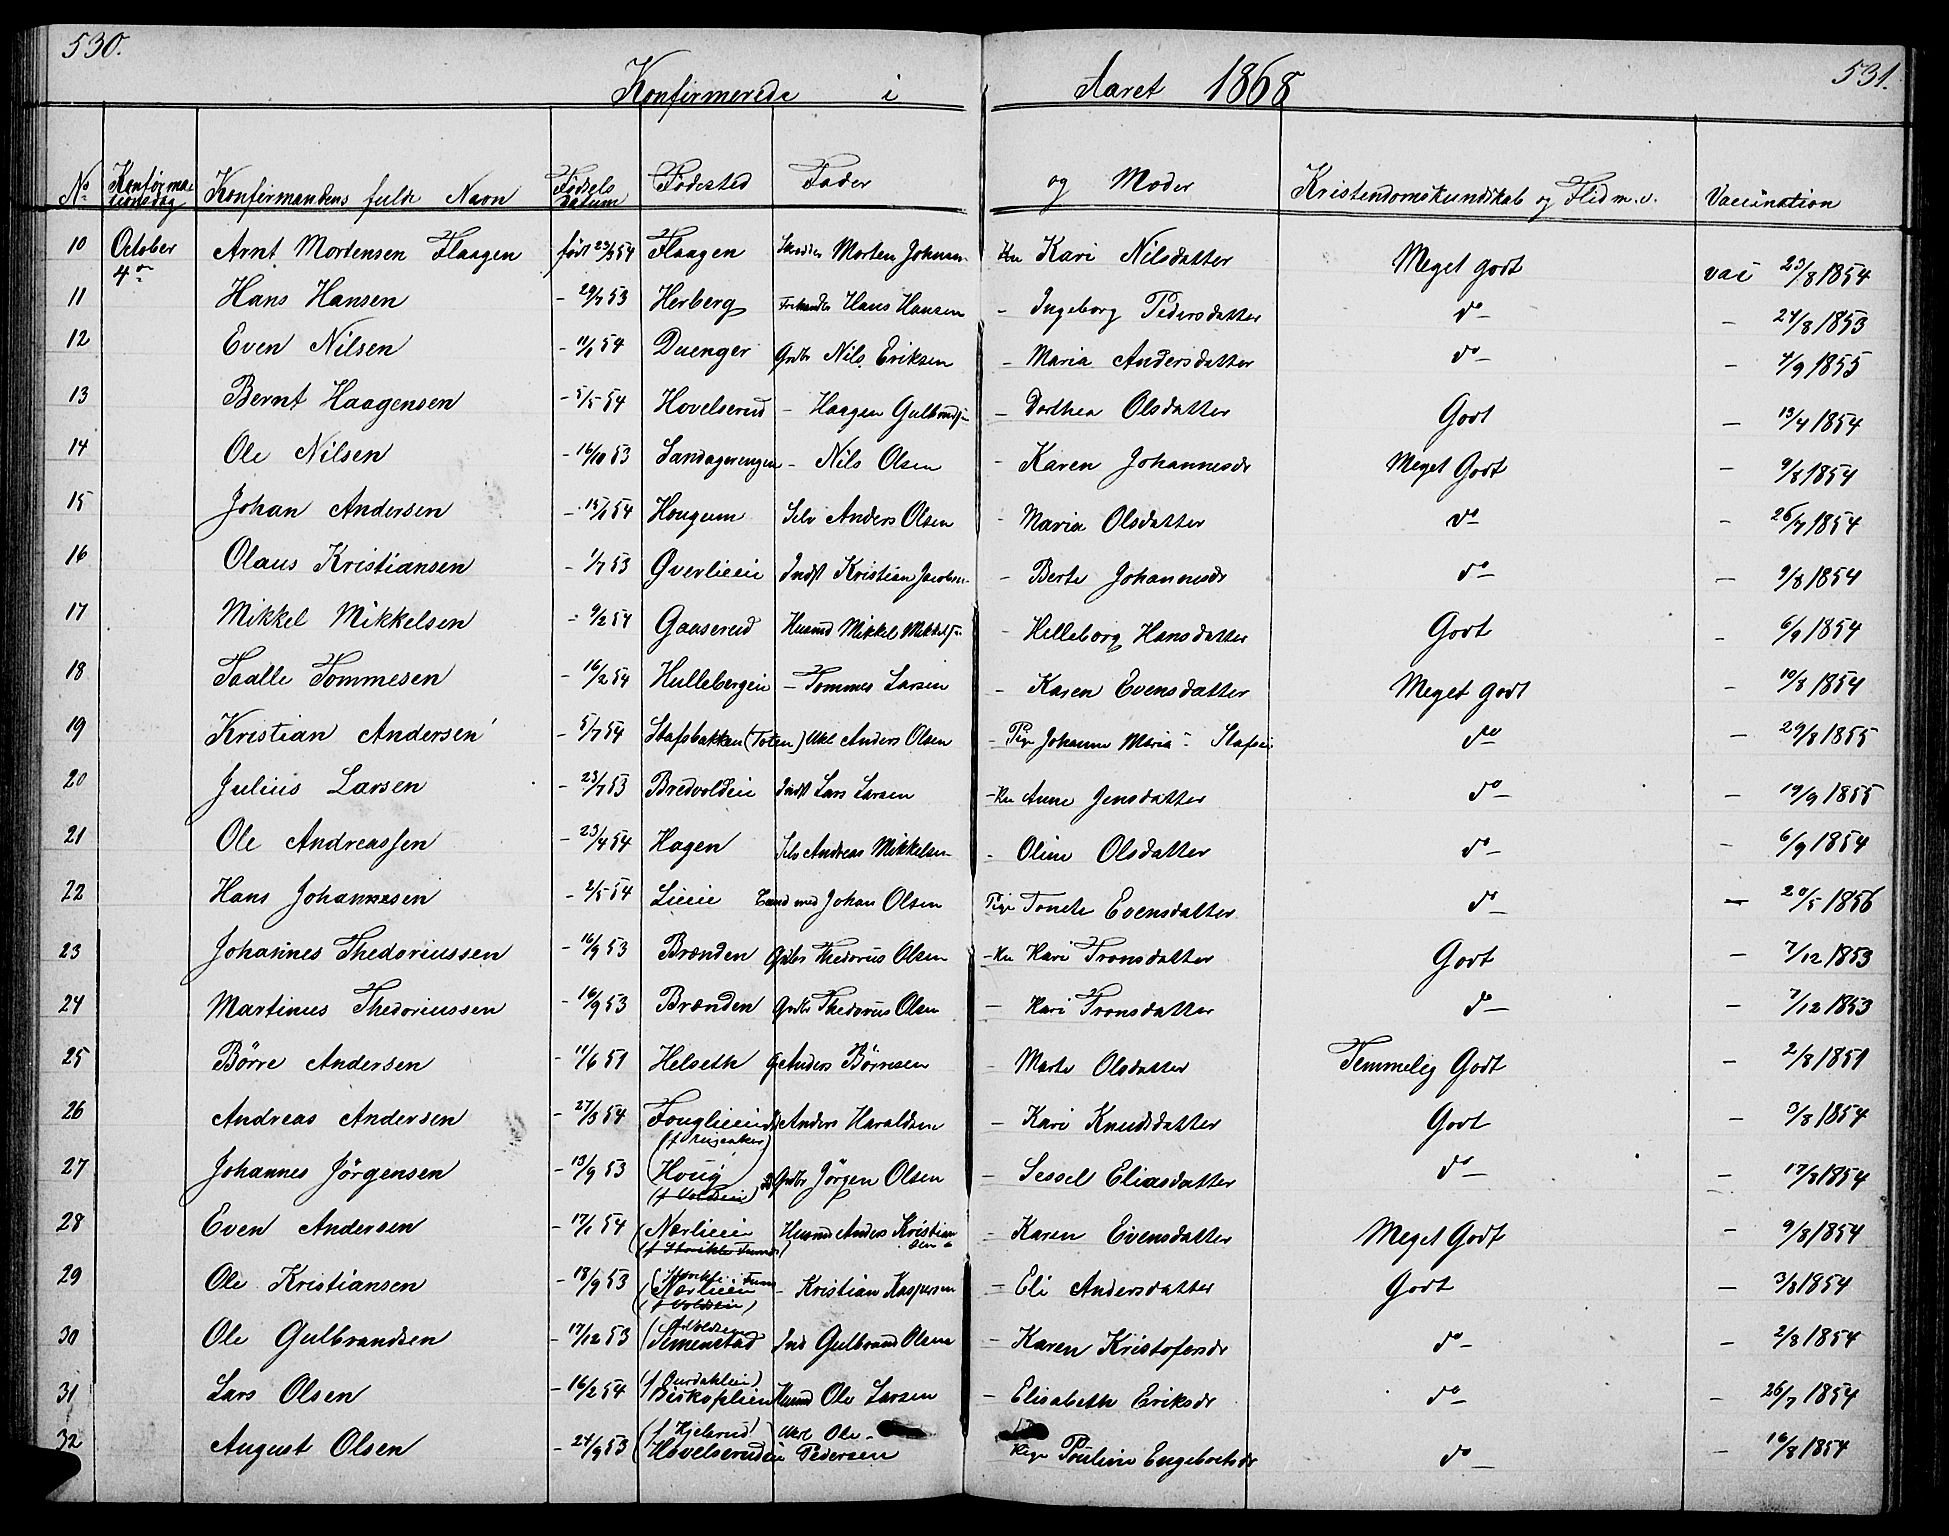 530.
531.
Konfirmerede i Aaret 1868
No Konfirmationsdag Konfirmandens fulde Navn Fødsels datum Fødested Fader og Moder Kristendomskundskab og Flid m.v. Vaccination
10 October 4de Arnt Mortensen Flaagen født 23/2 54 Flaagen Morten Johnsen Kn Kari Nilsdatter Meget godt vac 23/8 1854
11 Hans Hansen - 29/7 53 Herberg Hans Hansen - Ingeborg Pedersdatter do - 24/8 1853
12 Even Nilsen - 11/1 54 Duenger Grdbr Nils Eriksen - Maria Andersdatter do - 4/9 1855
13 Bernt Haagensen - 5/5 54 Hovelserud - Haagen Gulbrands - Dorthea Olsdatter Godt - 13/4 1854
14 Ole Nilsen - 16/10 53 Landagerengen - Nils Olsen - Karen Johannesdr Meget Godt - 9/8 1854
15 Johan Andersen - 15/1 54 Hougum Selv Anders Olsen - Maria Olsdatter do - 26/7 1854
16 Olaus Kristiansen - 1/7 53 Qverlieeie Indst Kristian Jacobsen - Berte Johannesdr do - 9/8 1854
17 Mikkel Mikkelsen - 9/2 54 Gaaserud Husmd Mikkel Mikkels - Helleborg Hansdatter Godt - 6/9 1854
18 Taalle Tommesen - 16/2 54 Hullebergeie - Tommes Larsen - Karen Evensdatter Meget godt - 10/8 1854
19 Kristian Andersen - 5/7 54 Stafsbakken (Toten) Ukl Anders Olsen - Pige Johanne Maria do - 29/8 1855
20 Julius Larsen - 23/7 53 Bredvoldeie Indst Lars Larsen - Kn Anne Jensdatter do - 19/9 1855
21 Ole Andreassen - 23/4 54 Hagen Selv Andreas Mikkelsen - Oline Olsdatter do - 6/9 1854
22 Hans Johannesen - 2/5 54 Lieeie Johan Olsen Pige Evensdatter do - 20/5 1856
23 Johannes Thedoriussen - 16/9 53 Brænden Grdbr Thedorius Olsen - Kn Kari Tronsdatter Godt - 7/12 1853
24 Martinus Thedoriussen - 16/9 53 Brænden Grdbr Thedorius Olsen - Kari Tronsdatter do - 7/12 1853
25 Börre Andersen - 11/6 51 Helseth Anders Börresen - Marte Olsdatter Temmelig Godt - 2/8 1851
26 Andreas Andersen - 27/3 54 Fouglieeie Anders Haraldsen - Kari Knudsdatter Godt - 3/8 1854
27 Johannes Jörgensen - 13/9 53 Houg Grdbr Jörgen Olsen - Sessel Eliasdatter do - 17/8 1854
28 Even Andersen - 17/1 54 Nærlieeie Husmd Anders Kristiansen - Karen Evensdatter Meget Godt - 9/8 1854
29 Ole Kristiansen - 18/9 53 Nærlieeie - Kristian Kaspersen - Eli Andersdatter Godt - 3/8 1854
30 Ole Gulbrandsen - 17/12 53 Simenstad Ind Gulbrand Olsen - Karen Kristofersdr do - 2/8 1854
31 Lars Olsen - 16/2 54 Biskoplien Husmd Ole Larsen - Elisabeth Eriksdr do - 26/7 1854
32 August Olsen - 24/9 53 (f Hjelerud) Hovelserudeie Ukl Ole Pedersen Pige Pouline Engebretsdr do - 16/8 1854